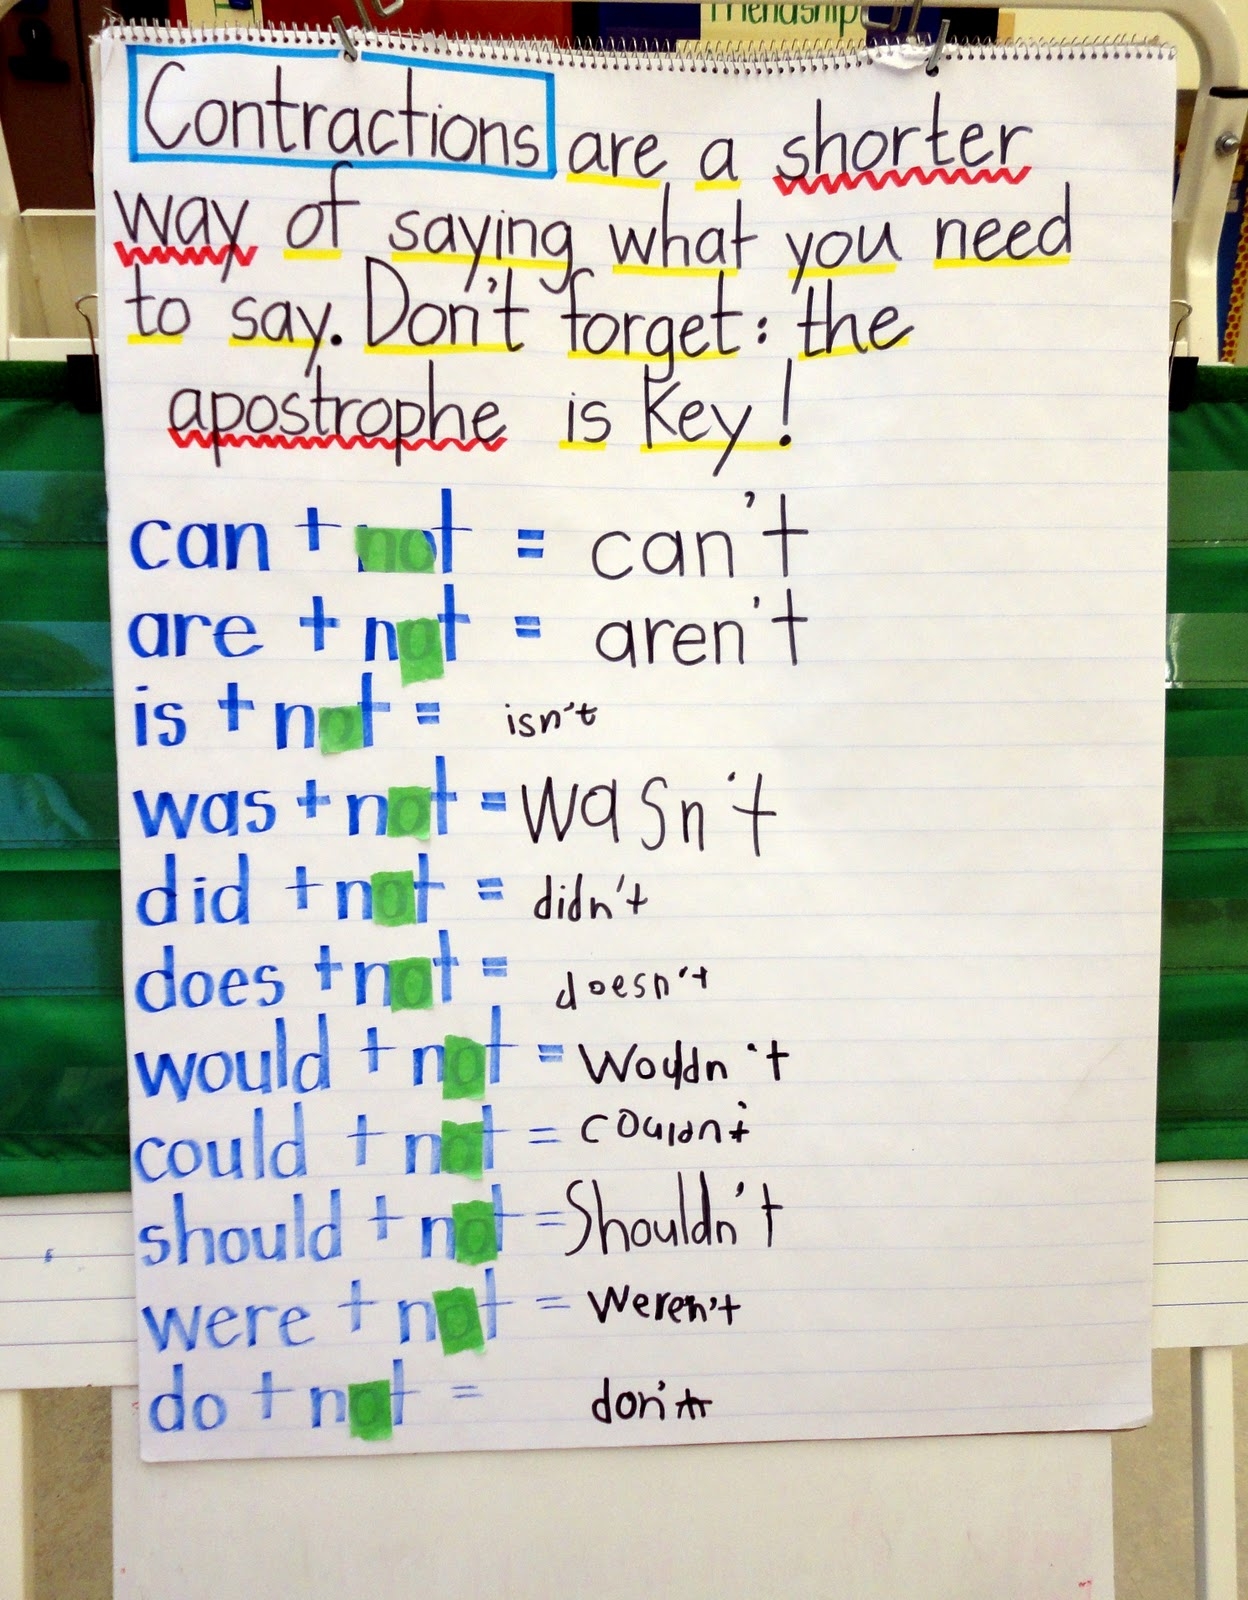 Friendship
Contractions are a shorter
way of saying what you need
to say. Don't forget: the
apostrophe is Key!
can + not = can't
are + not = aren't
is + not = isn't
was + not = wasn't
did + not = didn't
does + not = doesn't
would + not = Wouldn't
could + not = couldn't
should + not = Shouldn't
were + not = weren't
do + not = don't